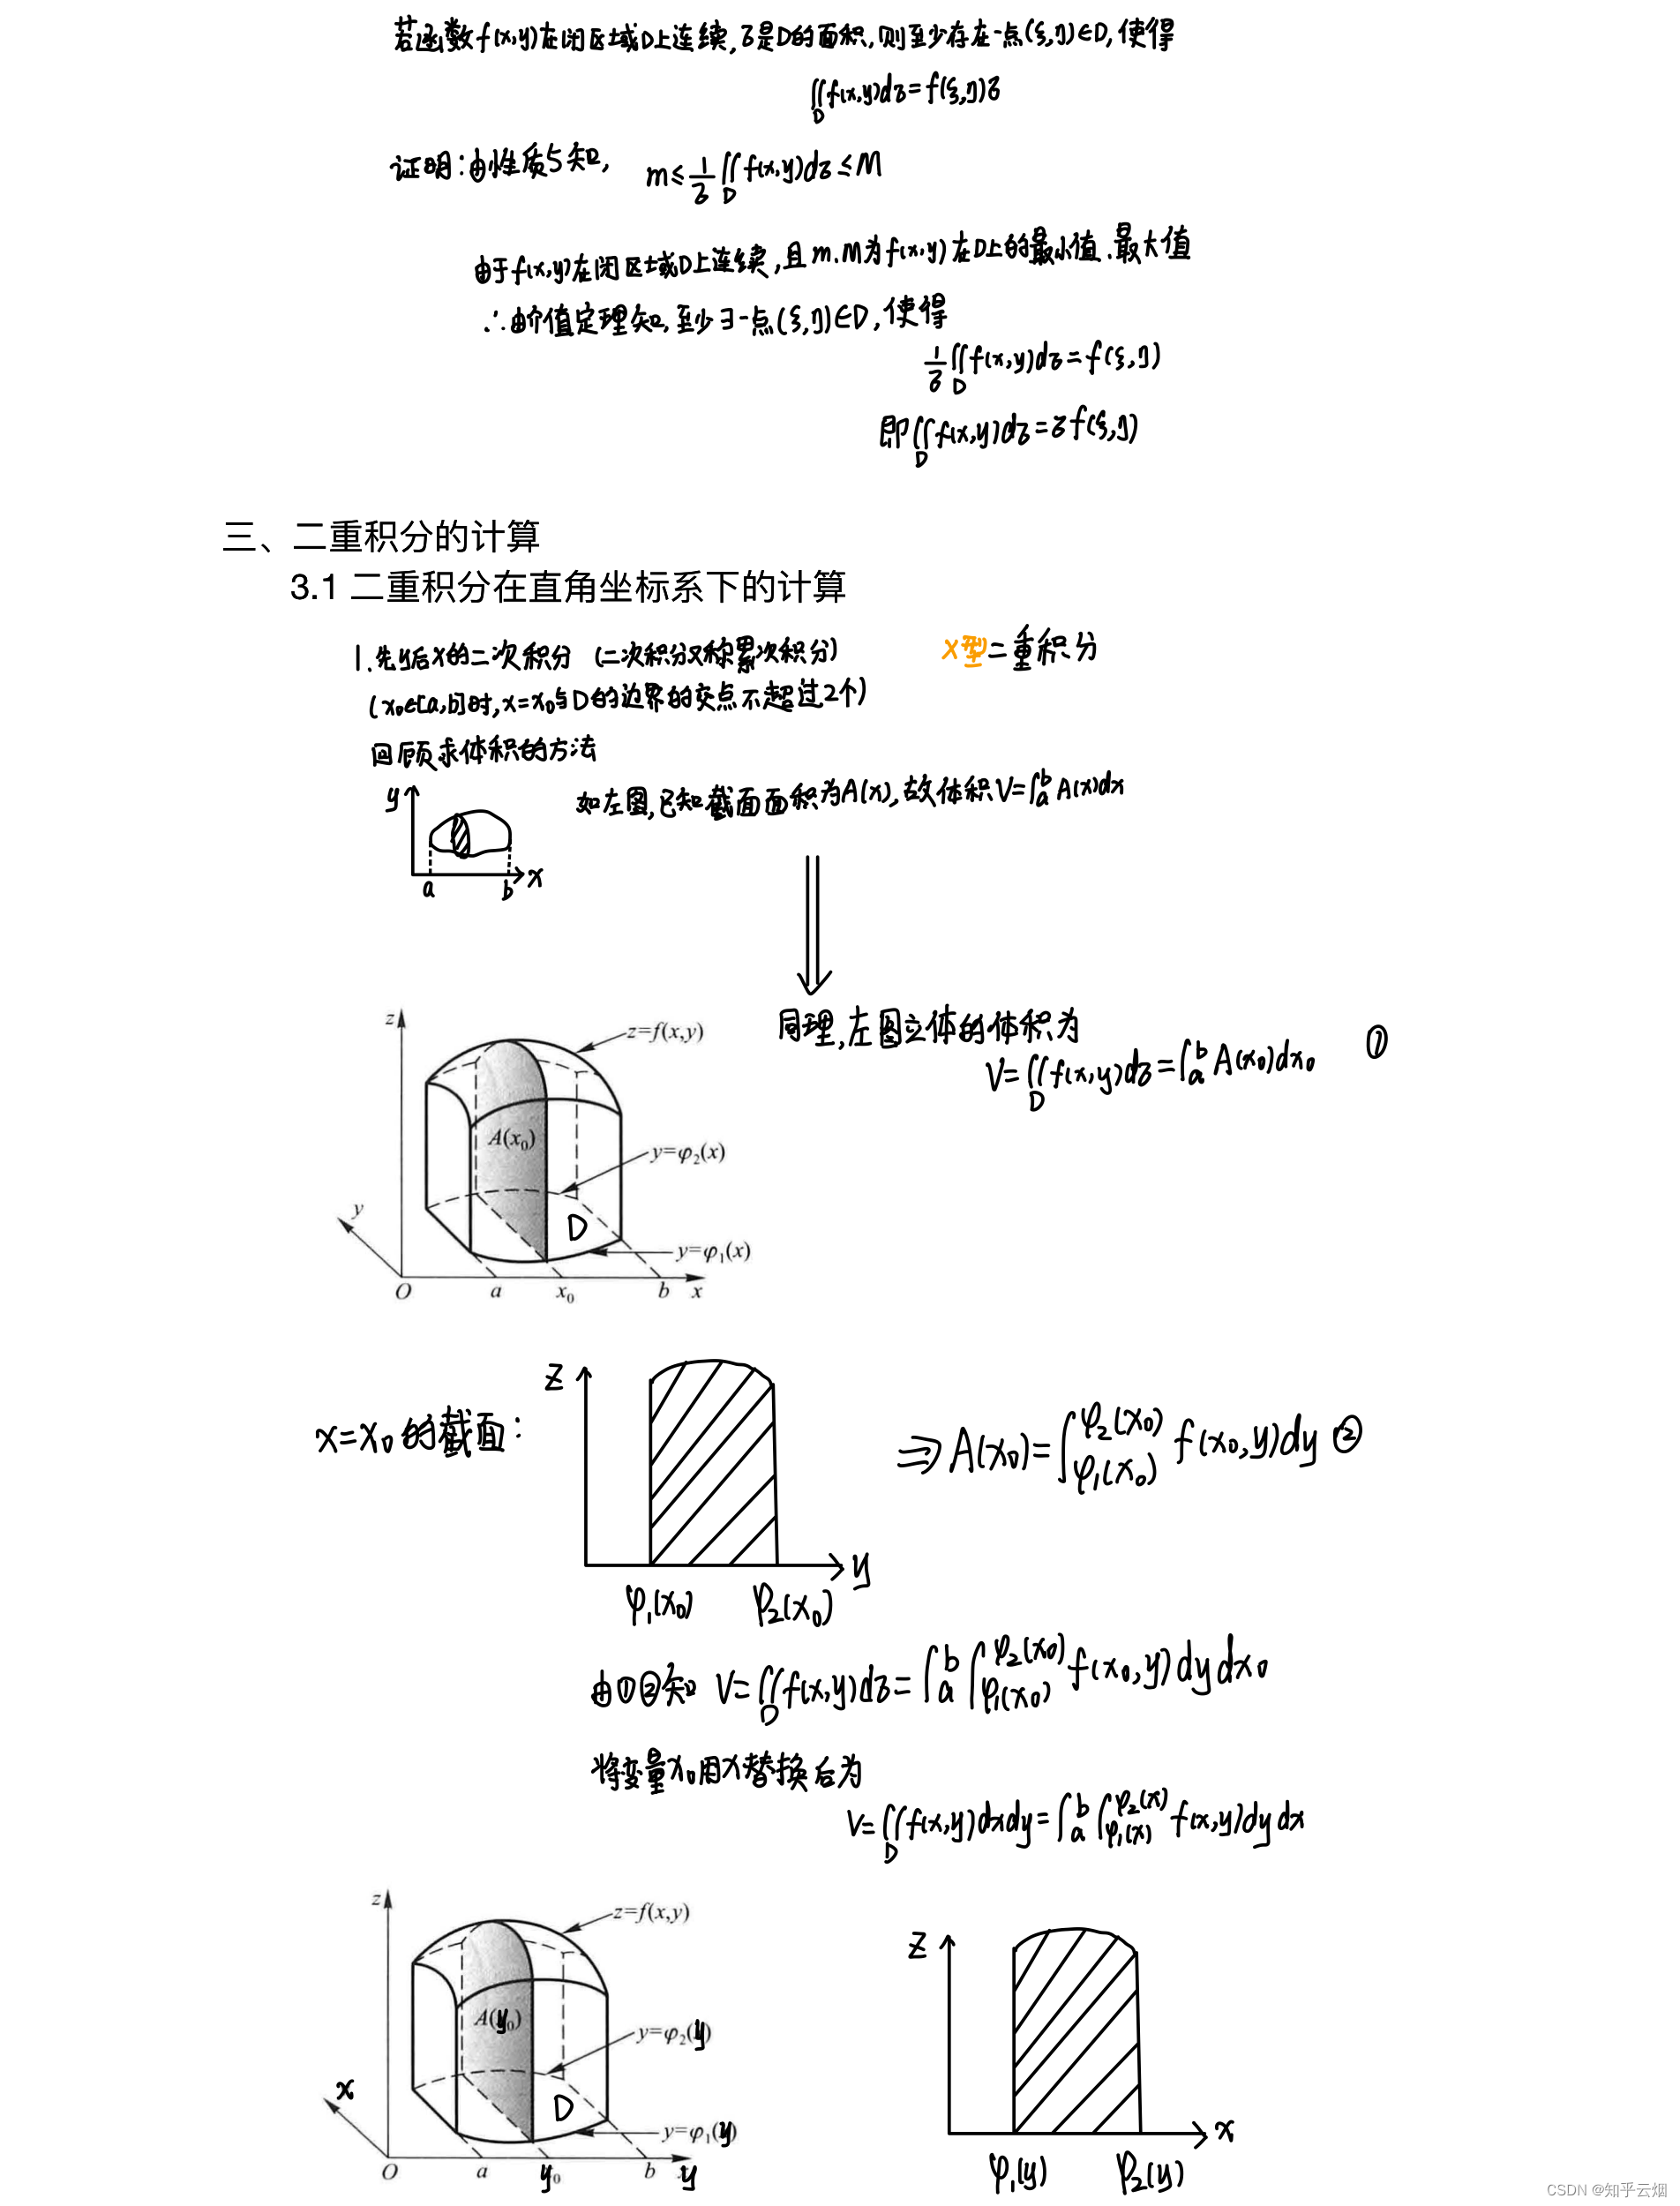 若函数f(x,y)在闭区域D上连续,σ是D的面积,则至少存在一点(ξ,η)∈D,使得
∬f(x,y)dσ=f(ξ,η)σ
D
证明:由性质5知, m≤1/σ∬f(x,y)dσ≤M
D
由于f(x,y)在闭区域D上连续,且m.M为f(x,y)在D上的最小值.最大值
∴由介值定理知,至少∃一点(ξ,η)∈D,使得
1/σ∬f(x,y)dσ=f(ξ,η)
D
即∬f(x,y)dσ=σf(ξ,η)
D
三、二重积分的计算
3.1 二重积分在直角坐标系下的计算
1.先y后x的二次积分 (二次积分又称累次积分) X型二重积分
(x₀∈[a,b]时,x=x₀与D的边界的交点不超过2个)
回顾求体积的方法
如左图,已知截面面积为A(x),故体积V=∫ₐᵇA(x)dx
y
a b x
同理,左图立体的体积为
V=∬f(x,y)dσ=∫ₐᵇA(x₀)dx₀ ①
D
z
z=f(x,y)
A(x₀)
y=φ₂(x)
y
D
y=φ₁(x)
O a x₀ b x
x=x₀的截面:
z
y
φ₁(x₀) φ₂(x₀)
⇒A(x₀)=∫ φ₂(x₀) φ₁(x₀) f(x₀,y)dy ②
由①②知 V=∬f(x,y)dσ=∫ₐᵇ∫ φ₂(x₀) φ₁(x₀) f(x₀,y)dydx₀
D
将变量x₀用x替换后为
V=∬f(x,y)dxdy=∫ₐᵇ∫ φ₂(x) φ₁(x) f(x,y)dydx
D
z
z=f(x,y)
A(y₀)
y=φ₂(y)
x
D
y=φ₁(y)
O a y₀ b y
z
x
φ₁(y) φ₂(y)
CSDN @知乎云烟